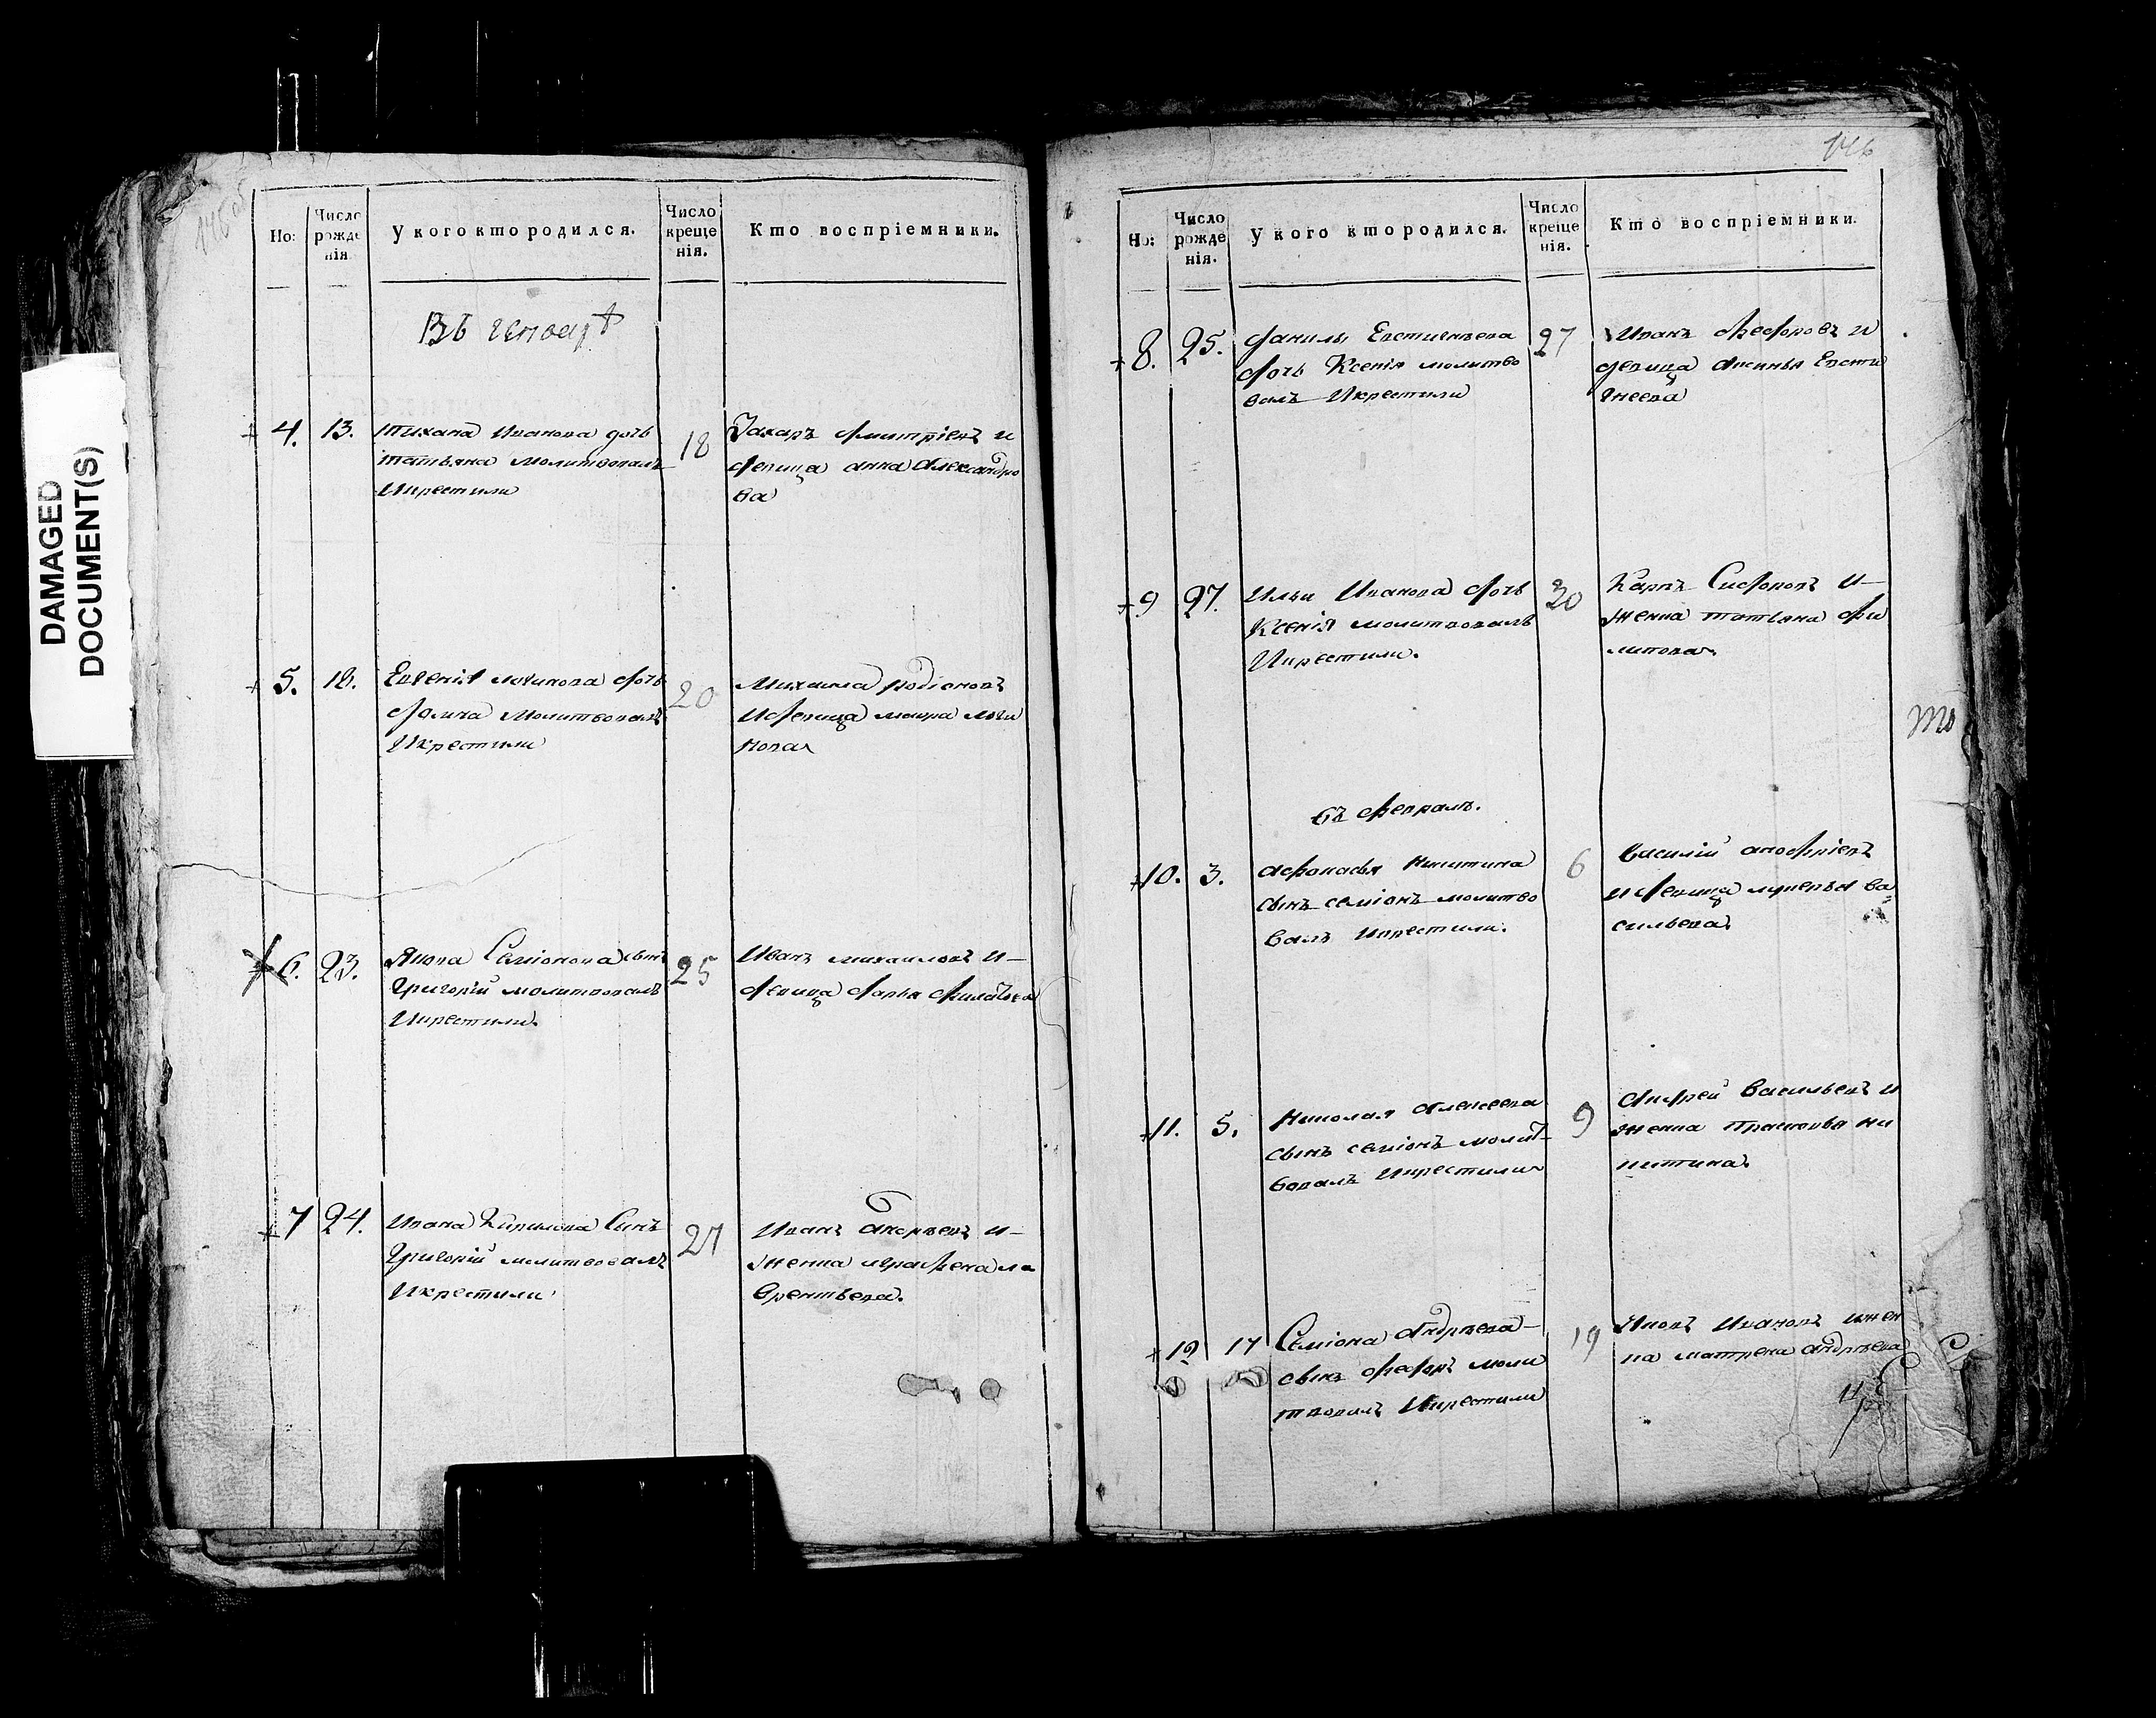 DAMAGED
DOCUMENT(S)
Но:
Число рожде нія
У кого кто родился.
Число креще нія.
Кто воспріемники.
Въ генварѣ
4. 13.
Тихана Иванова дочь
татьяна молитвовалъ
Икрестили
18
Захаръ дмитріевъ и
девица анна Александро
ва
5. 18.
Евгенія логинова дочь
молитвовалъ
Икрестили
20
Михаила родіоновъ
Идевица мавра логи
нова
6. 23.
Якова Семіонова сынъ
Григорій молитвовалъ
Икрестили.
25
Иванъ михаиловъ и
девица дарья
7 24.
Ивана Кирилова Сынъ
Григорій молитвовалъ
Икрестили
27
Иванъ Андреевъ и
женка ла
врентьева.
146
Но:
Число рожде нія.
У кого кто родился.
Число креще нія.
Кто воспріемники.
8. 25.
данилы Евстигнеева
дочь Ксенія молитво
валъ Икрестили
27
Иванъ Федоровъ и
девица Аксинья Евсти
гнеева
9 27.
Ильи Иванова дочь
Ксенія молитвовалъ
Икрестили.
30
Карпъ Сидоровъ и
женка татьяна фи
липова.
въ феврале.
10. 3.
Афонасья Никитина
сынъ семіонъ молитво
валъ Икрестили.
6
Василій
и девица лукерья ва
сильева.
11. 5.
Николая Алексеева
сынъ семіонъ молит
вовалъ Икрестили
9
Андрей Васильевъ и
женка Прасковья ни
китина.
12 17
Семіона Андреева
сынъ федоръ моли
твовалъ Икрестили
19
Яковъ Ивановъ ижен
ка матрена андреева